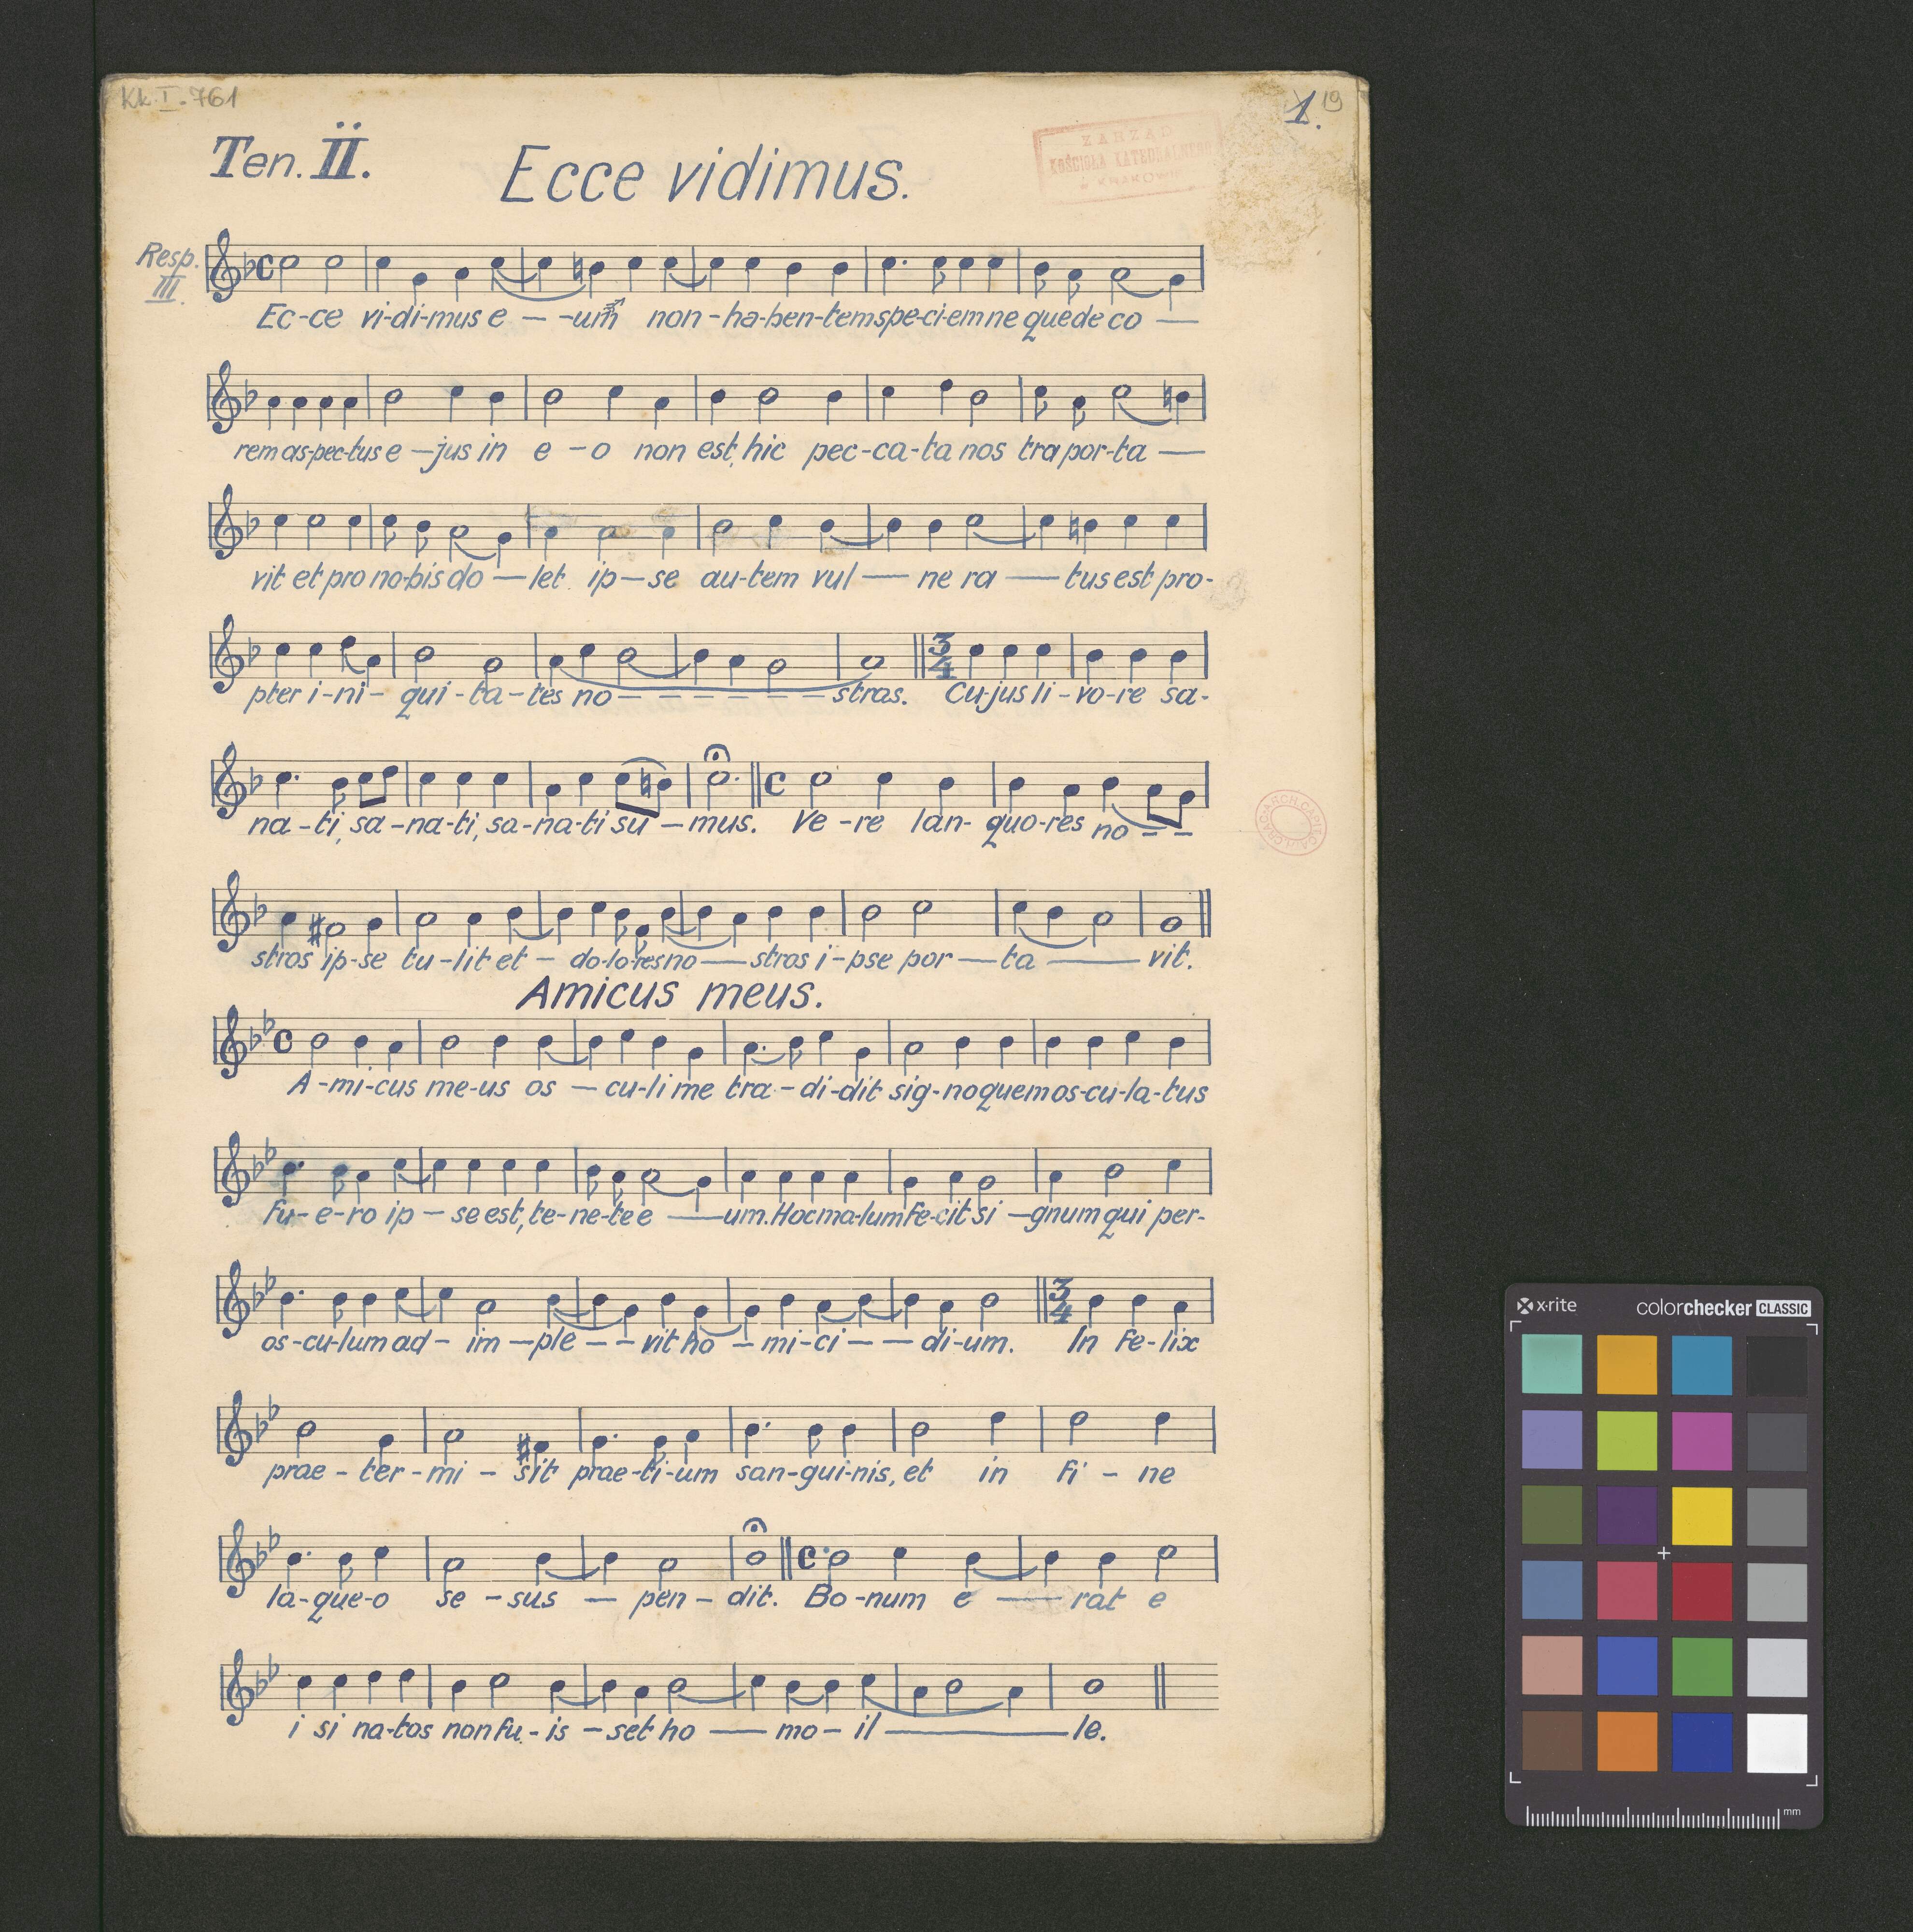 Kk. I. 761
1. 19
Ten. II.
Ecce vidimus.
ZARZĄD
KOŚCIOŁA KATEDRALNEGO
W KRAKOWIE
Resp.
III.
Ec-ce vi-di-mus e - -um non-ha-ben-tem spe-ci-em ne que de co —
rem as-pec-tus e -jus in e -o non est, hic pec-ca-ta nos tra por-ta —
vit et pro no-bis do — let ip — se au-tem vul — ne ra — tus est pro-
pter i-ni- qui-ta-tes no - - - - - stras. Cu-jus li-vo-re sa-
na-ti, sa-na-ti, sa-na-ti su — mus. Ve-re lan- quo-res no - -
stros ip-se tu-lit et - do-lo-res no — stros i-pse por — ta — vit.
Amicus meus.
A-mi-cus me-us os — cu-li me tra-di-dit sig-no quem os-cu-la-tus
fu-e-ro ip — se est, te-ne-te e — um. Hoc ma-lum fe-cit si -gnum qui per-
os-cu-lum ad- im —ple - - vit ho - mi-ci - - di-um. In fe-lix
prae-ter-mi-sit prae-ti-um san-gui-nis, et in fi - ne
la-que-o se -sus — pen - dit. Bo-num e — rat e
i si na-tos non fu-is -set ho — mo - il — le.
ARCH. CAPIT. CATH. CRAC.
x·rite
colorchecker CLASSIC
mm